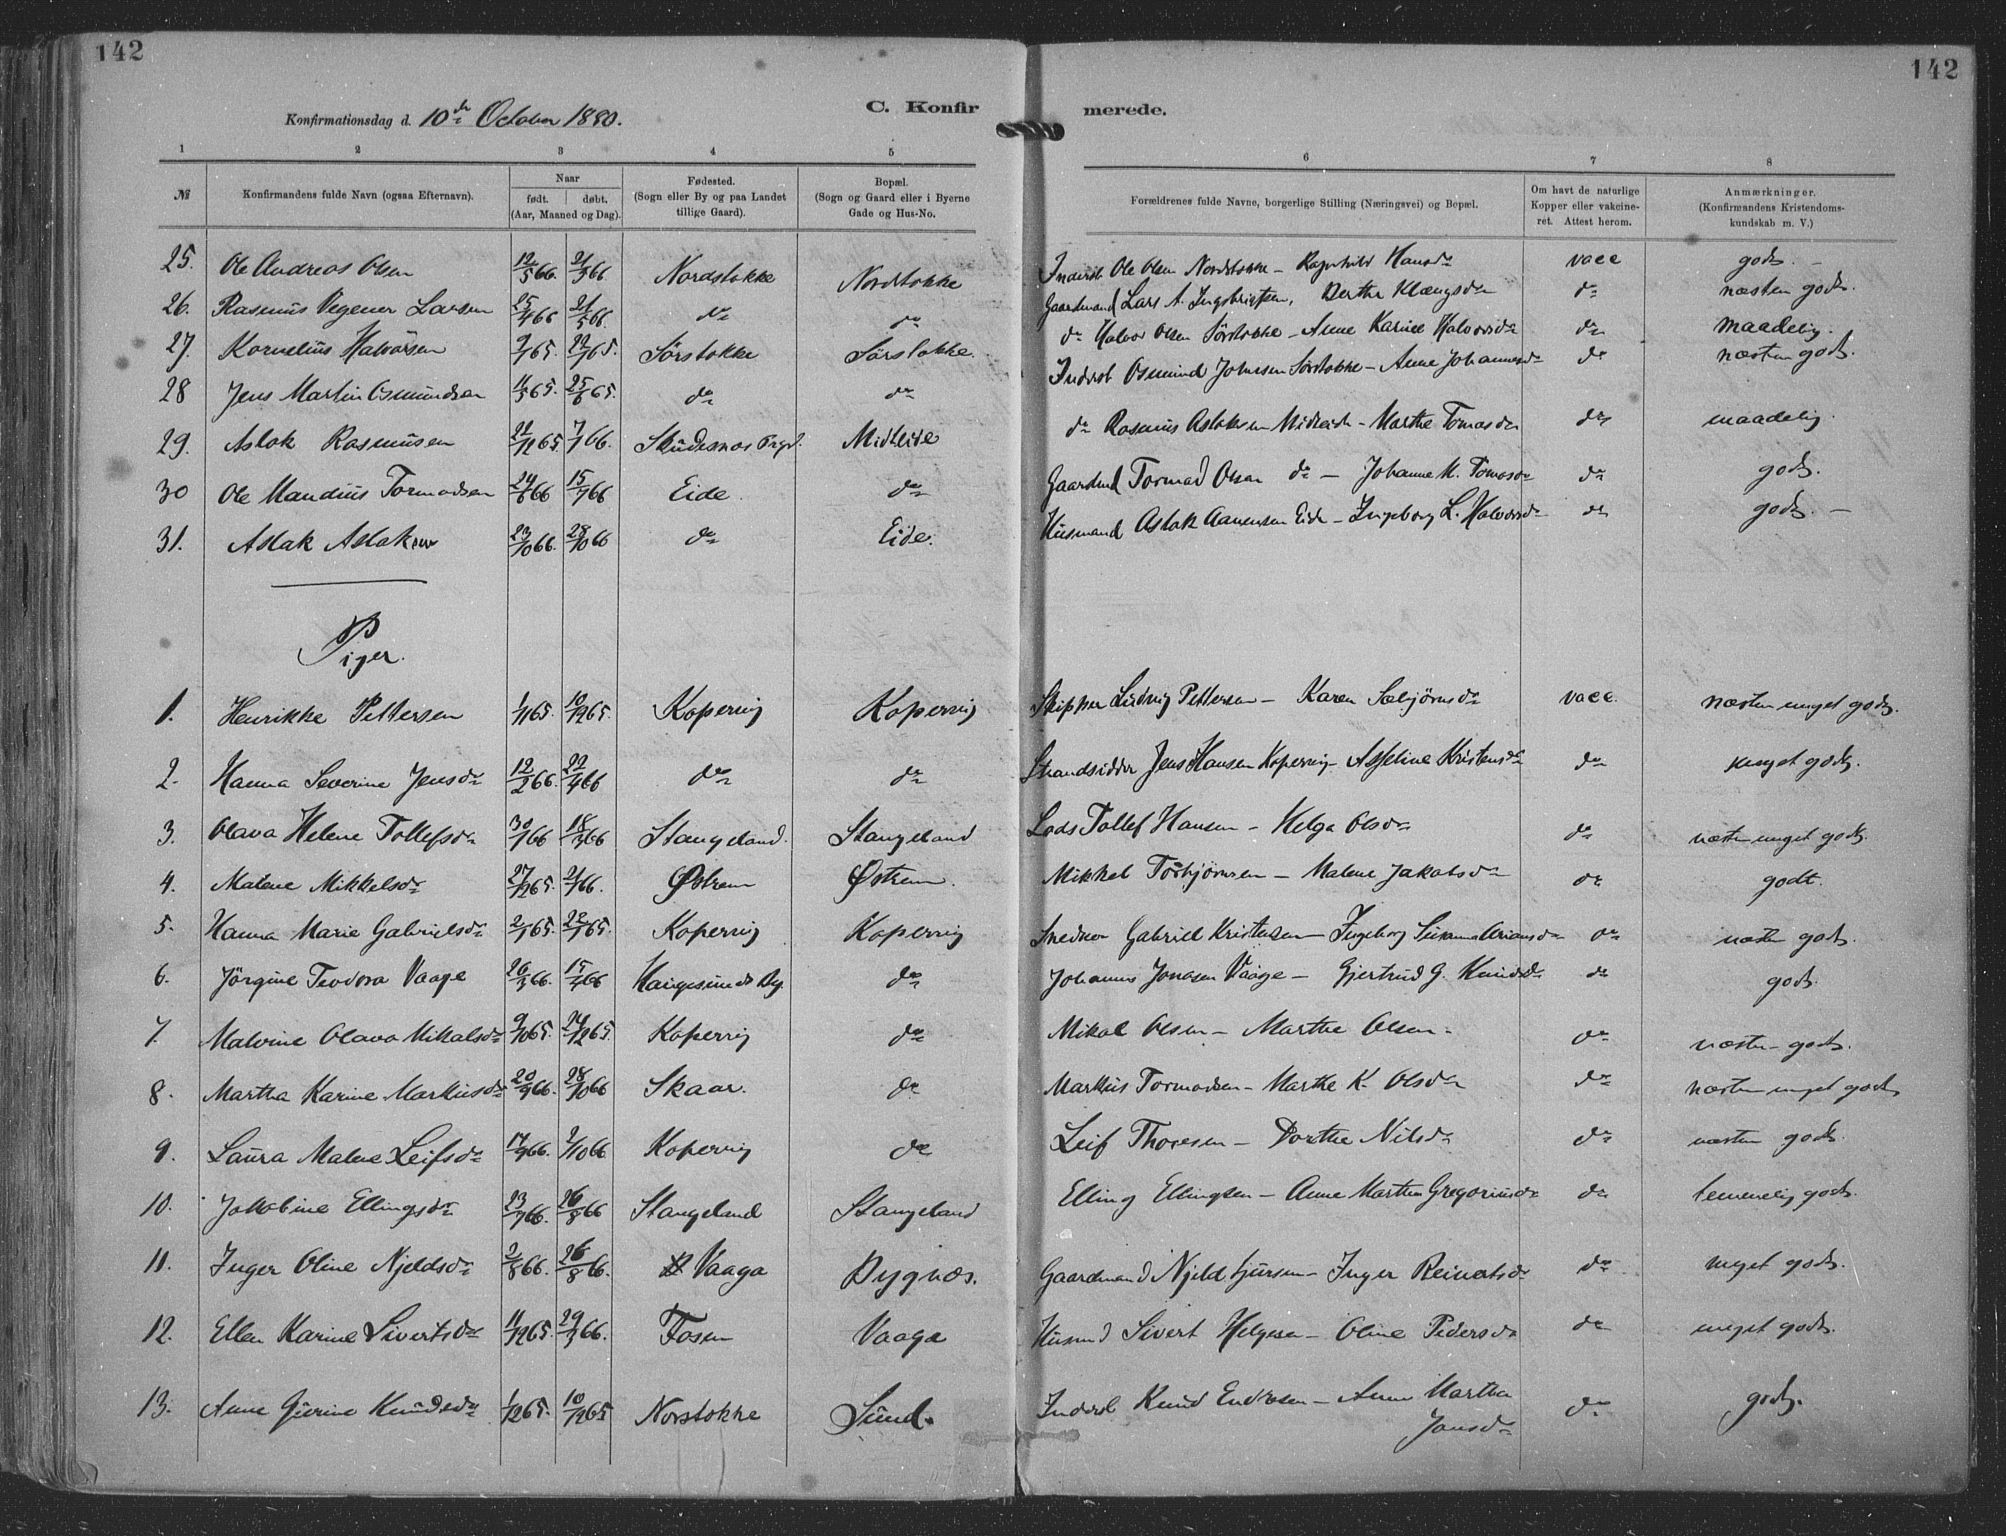 142
142
Konfirmationsdag d. 10de October 1880.
C. Konfir
merede.
1 2 3 4 5 6 7 8
№ Konfirmandens fulde Navn (ogsaa Efternavn). Naar født. døbt. (Aar, Maaned og Dag). Fødested. (Sogn eller By og paa Landet tillige Gaard). Bopæl. (Sogn og Gaard eller i Byerne Gade og Hus-No. Forældrenes fulde Navne, borgerlige Stilling (Næringsvei) og Bopæl. Om havt de naturlige Kopper eller vakcineret. Attest herom. Anmærkninger. (Konfirmandens Kristendomskundskab m. V.)
25. Ole Andreas Olsen 12/5 66. 21/5 66 Nordstokke Nordstokke Inderst Ole Olsen Nordstokke – Ragnhild Hansdr vacc godt. –
26. Rasmus Vegener Larsen 25/4 66 21/5 66. dr dr Gaardmand Lars A. Ingebrietsen, Berthe Klængsdr dr næsten godt.
27. Kornelius Halvorsen 9/7 65. 22/7 65. Sørstokke Sørstokke. dr Halvor Olsen Sørstokke – Anne Karine Halvorsdr dr maadelig.
28 Jens Martin Osmundsen 11/5 65. 25/6 65. dr dr Inderst Osmund Johnsen Sørstokke – Anne Johannesdr dr næsten godt.
29. Aslak Rasmusen 22/12 65. 7/1 66. Skudesnæs Prgd. Midteide dr Rasmus Aslaksen Midteide – Marthe Tomasdr dr maadelig.
30 Ole Mandius Tormodsen 24/6 66 15/7 66 Eide. dr Gaardmd Tormod Olsen dr – Johanne M. Tomasdr dr godt.
31. Aslak Aslaksen 23/10 66. 28/10 66 dr Eide. Husmand Aslak Aanensen Eide – Ingeborg L. Halvorsdr dr godt. –
Piger.
1. Henrikke Pettersen 1/11 65. 10/12 65. Kopervig Kopervig Skipper Ludvig Pettersen – Karen Sæbjørnsdr vacc. næsten meget godt.
2. Hanna Severine Jensdr 12/2 66. 22/4 66 dr dr Strandsidder Jens Hansen Kopervig – Asseline Kristensdr dr meget godt.
3. Olava Helene Tollefsdr 30/1 66 18/3 66 Stangeland. Stangeland Lods Tollef Hansen – Helga Olsdr dr næsten meget godt.
4. Malene Mikkelsdr 27/12 65. 21/1 66. Østrem Østrem. Mikkel Torbjørnsen – Malene Jakobsdr dr godt.
5. Hanna Marie Gabrielsdr 2/7 65. 22/7 65. Kopervig Kopervig Snedker Gabriel Kristensen – Ingeborg Susanna Ariansdr dr næsten godt.
6. Jörgine Teodora Vaage 26/3 66. 15/4 66 Haugesunds By. dr Johannes Jonasen Vaage – Gjertrud G. Knudsdr dr godt.
7. Malvine Olava Mikalsdr 9/10 65. 24/12 65. Kopervig dr Mikal Olsen – Marthe Olsen – dr næsten godt.
8. Martha Karine Markusdr 20/9 66. 28/10 66 Skaar. dr Markus Tormodsen – Marthe K. Olsdr dr næsten meget godt
9. Laura Malene Leifsdr 17/9 66. 7/10 66 Kopervig dr Leif Thoresen – Dorthe Nilsdr dr næsten godt.
10. Jakobine Ellingsdr 23/7 66. 26/8 66 Stangeland Stangeland Elling Ellingsen – Anne Marthe Gregoriusdr dr temmelig godt.
11. Inger Oline Njeldsdr 2/8 66. 26/8 66. Vaaga Bygnæs. Gaardmand Njeld – Inger Reinertsdr dr meget godt.
12. Ellen Karine Sivertsdr 11/12 65. 29/3 66. Fosen Vaaga Husmd Sivert Helgesen – Oline Pedersdr dr meget godt.
13. Anne Gurine Knudsdr 1/12 65. 10/12 65 Norstokke Sund. Inderst Knud Endresen – Anne Martha Jansdr dr godt.